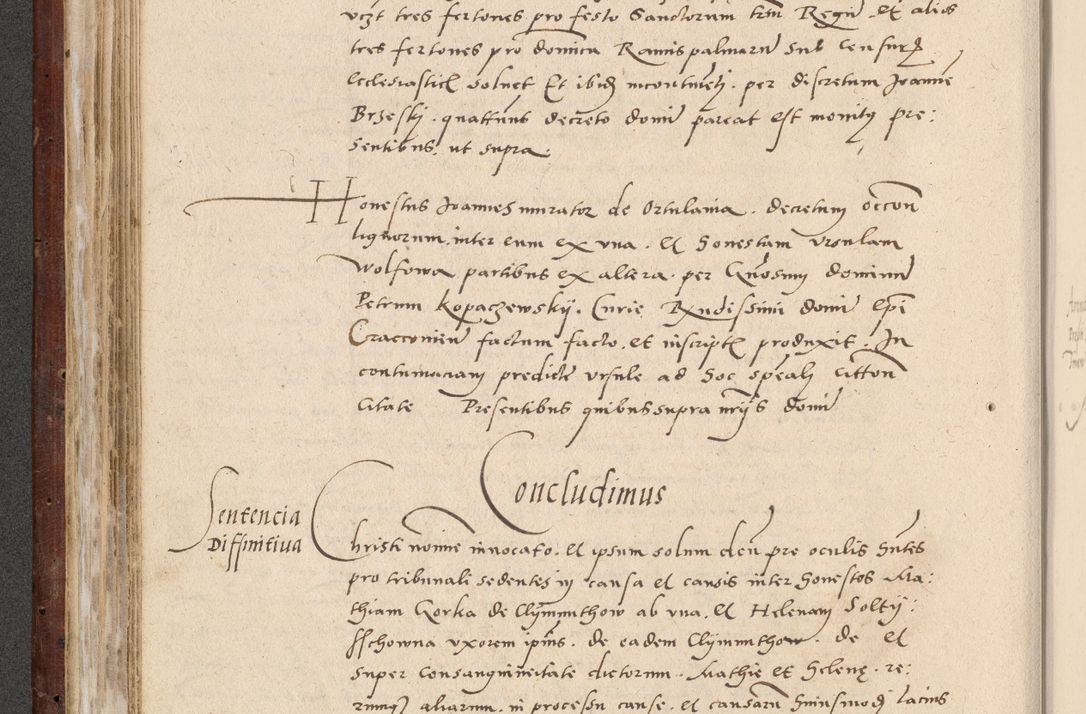 vczt tres fertones pro festo Sanctorum trm Regu Et alios
tres fertones pro domica Ramispalmarum sub censurę
Ecclesiastice solvet Et ibid incontineti per discretum Joanne
Brzesky quattnus decreto domi pareat est monitus pre:
sentibus ut supra.
Honestus Joannes murator de Ortulania decretum occon
lignorum inter eum ex vna Et honestam Vrsulam
Wolfowa partibus ex altera per Gnosum dominum
Petrum Kopaczewskij Curie Rxndissimi domi Epi
Cracconien factum facto et inscripte produxit In
contumaciam predicte vrsule ad hoc speali citton
citate Presentibus quibus supra mrijs domi
Concludimus
Sentencia
Diffinitiua
Christi nomine innocato Et ipsum solum deum pre oculis hntes
pro tribunali sedentes in causa Et causis inter honestos Ma:
thiam Gorka de Clymunthow ab vna Et Helenam Soltij:
sschowna vxorem ipius de eadem Clymunthow de Et
super consanguineitate dictorum Mathie et helenę re:
rumq aliarum in processu cause et causaru huiusmodi lacius